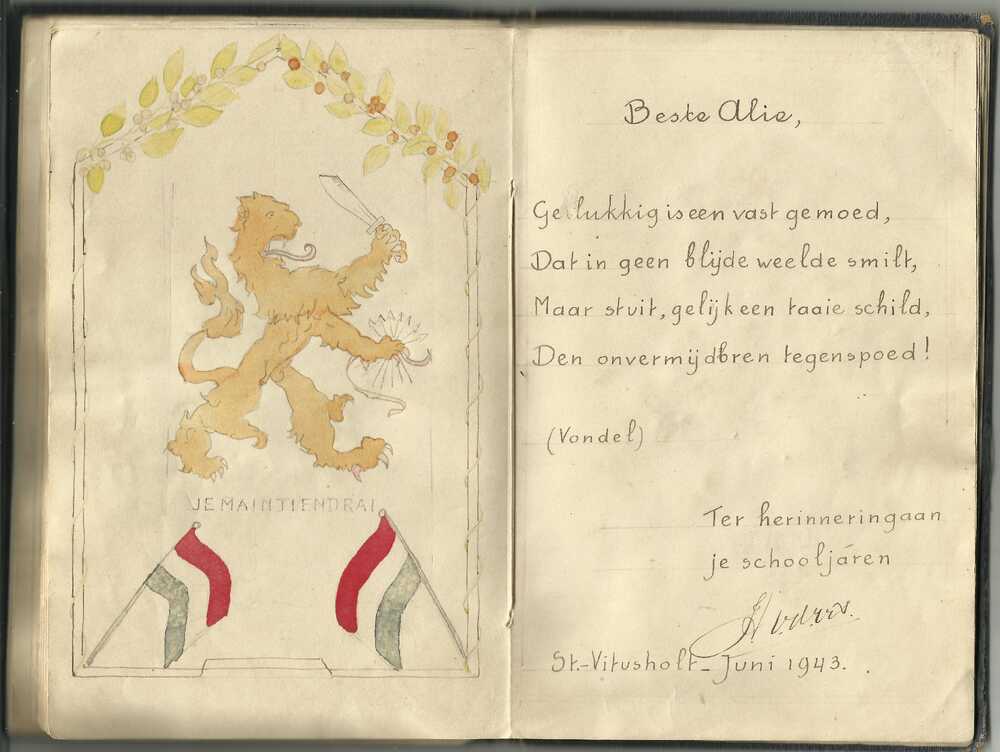 JE MAINTIENDRAI
Beste Alie,
Gelukkig is een vast gemoed,
Dat in geen blijde weelde smilt,
Maar stuit, gelijk een taaie schild,
Den onvermijdbren tegenspoed!
(Vondel)
Ter herinnering aan
je schooljáren
St.-Vitusholt - Juni 1943.